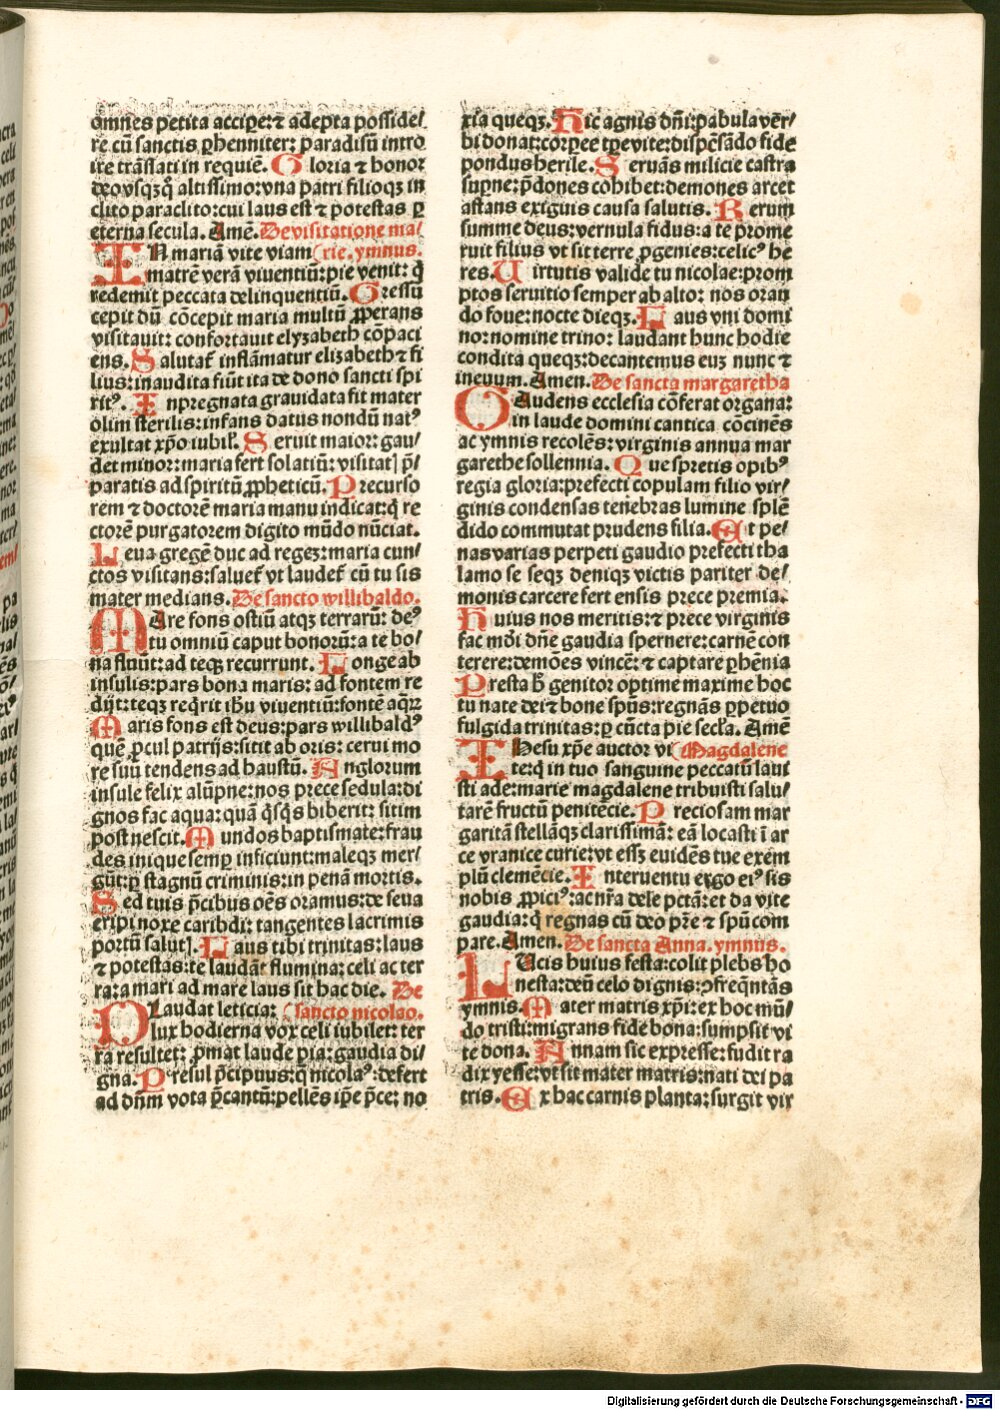 omnes petita accipe:⁊ adepta posside/
re cū sanctis ꝑhenniter: paradisū intro
ire trāslati in requiē. Gloria ⁊ honor
deo vsqꝫq̄ altissimo:vna patri filioqꝫ in
clito paraclito:cui laus est ⁊ potestas ꝑ
eterna secula. Amē. De visitatione ma/
IN mariā vite viam (rie.ymnus.
matrē verā viventiū:pie venit: q̄
redemit peccata delinquentiū. Gressū
cepit dū cōcepit maria multū ꝓperans
visitauit: confortauit elyzabeth cōpaci
ens. Salutat̄ inflāmatur elizabeth ⁊ fi
lius:inaudita fiūt ita de dono sancti spi
ritꝰ. Inpregnata grauidata fit mater
olim sterilis:infans datus nondū natꝰ
exultat xp̄o iubil'. Seruit maior:gau/
det minor:maria fert solatiū:visitat] p̄/
paratis ad spiritū ꝓpheticū. Precurso
rem ⁊ doctorē maria manu indicat:q̄ re
ctorē purgatorem digito mūdo nūciat.
Leua gregē duc ad regeꝫ:maria cun/
ctos visitans:saluet̄ vt laudet̄ cū tu sis
mater medians. De sancto willibaldo.
MAre fons ostiū atqꝫ terrarū: deꝰ
tu omniū caput bonorū:a te bo/
na fluūt:ad teqꝫ recurrunt. Longe ab
insulis:pars bona maris: ad fontem re
dijt:teqꝫ req̄rit ih̄u viventiū:fontē aq̄ꝝ
Maris fons est deus:pars willibaldꝰ
quē ꝓcul patrijs:sitit ab oris: cerui mo
re suū tendens ad haustū. Anglorum
insule felix alūpne:nos prece sedula:di
gnos fac aqua: quā q̄sq̄s biberit: sitim
post nescit. Mundos baptismate:frau
des inique semꝑ inficiunt:maleqꝫ mer/
gūt:ꝑ stagnū criminis:in penā mortis.
Sed tuis p̄cibus oēs oramus:de seua
eripi noxe caribdi: tangentes lacrimis
portū salut]. Laus tibi trinitas:laus
⁊ potestas:te laudāt flumina:celi ac ter
ra:a mari ad mare laus sit hac die. De
PLaudat leticia: (sancto nicolao.
lux hodierna vox celi iubilet: ter
ra resultet: ꝓmat laude pia:gaudia di/
gna. Presul p̄cipuus:q̄ nicolaꝰ:defert
ad dn̄m vota p̄cantū:pellēs ip̄e p̄ce: no
xia queqꝫ. Hic agnis dn̄i:pabula ver/
bi donat:corpee tpe vite:dispēsādo fide
pondus herile. Seruās milicie castra
supne:p̄dones cohibet:demones arcet
astans exiguis causa salutis. Rerum
summe deus:vernula fidus:a te prome
ruit filius vt sit terre ꝓgenies:celicꝰ he
res. Uirtutis valide tu nicolae:prom
ptos seruitio semper ab alto: nos oran
do foue:nocte dieqꝫ. Laus vni domi
no:nomine trino: laudant hunc hodie
condita queqꝫ:decantemus euꝫ nunc ⁊
ineuum. Amen. De sancta margaretha
GAudens ecclesia cōferat organa:
in laude domini cantica cōcinēs
ac ymnis recolēs: virginis annua mar
garethe sollennia. Que spretis opibꝰ
regia gloria:prefecti copulam filio vir/
ginis condensas tenebras lumine splē
dido commutat prudens filia. Et pe/
nas varias perpeti gaudio prefecti tha
lamo se seqꝫ deniqꝫ victis pariter de/
monis carcere fert ensis prece premia.
Huius nos meritis:⁊ prece virginis
fac mōi dn̄e gaudia spernere:carnē con
terere:demōes vincē: ⁊ captare ꝑhēnia
Presta h̄ genitor optime maxime hoc
tu nate dei ⁊ bone spūs:regnās ꝑpetuo
fulgida trinitas:ꝑ cūcta pie secl'a. Amē
IHesu xp̄e auctor vi (Magdalene
te:q̄ in tuo sanguine peccatū laui
sti ade:marie magdalene tribuisti salu/
tarē fructū penitēcie. Preciosam mar
garitā stellāqꝫ clarissimā: eā locasti ī ar
ce vranice curie:vt esſꝫ euidēs tue exem
plū clemēcie. Interuentu ergo eiꝰ sis
nobis ꝓpiciꝰ:ac nr̄a dele pctā:et da vite
gaudia: q̄ regnas cū deo pr̄e ⁊ spū com
pare. Amen. De sancta Anna.ymnus.
LUcis huius festa:colit plebs ho
nesta:deū celo dignis:ↄfreq̄ntās
ymnis. Mater matris xp̄i:ex hoc mū/
do tristi:migrans fide bona:sumpsit vi
te dona. Annam sic expresse:fudit ra
dix yesse:vt sit mater matris:nati dei pa
tris. Ex hac carnis planta:surgit vir
Digitalisierung gefördert durch die Deutsche Forschungsgemeinschaft - DFG